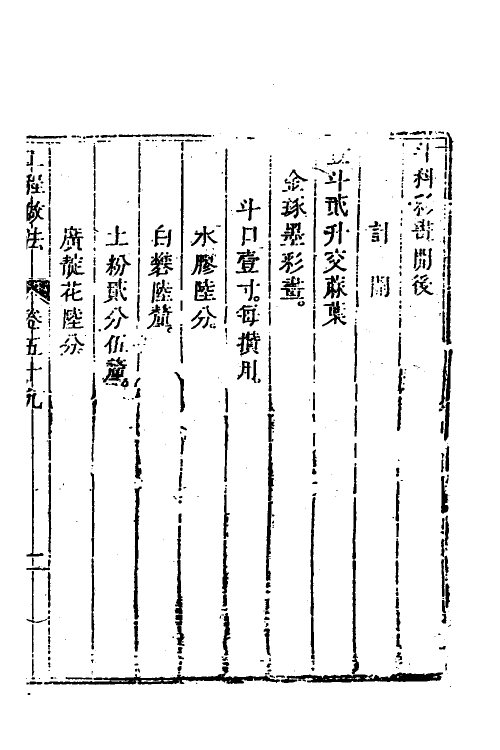 斗科彩畫開後
計開
斗貳升交蔴葉
金琢墨彩畫。
斗口壹寸。每攢用。
水膠陸分。
白礬陸釐。
土粉貳分伍釐。
廣靛花陸分
工程做法 卷五十九 一